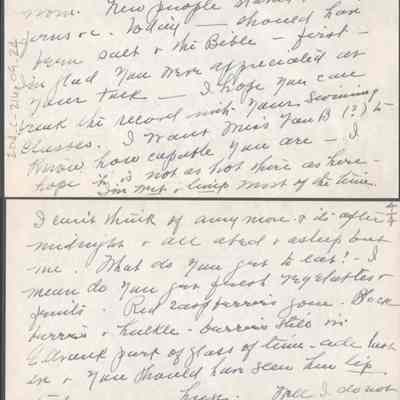 mom. New people
ferns &c. Today — should have
been salt & the Bible — first —
I'm glad you were appreciated at
your talk — I hope you can
break the record with your Swimming
Classes. I want Miss Van B (?) to
know how capable you are — I
hope it is not as hot there as here —
I'm wet & limp most of the time.
I can't think of any more & it's after
midnight & all abed & asleep but
me. What do you get to eat? — I
mean do you get fresh vegetables &
fruits. Red raspberries gone. Black
berries & huckle-berries still in
drank part of glass of
in & you should have seen him lip
I do not